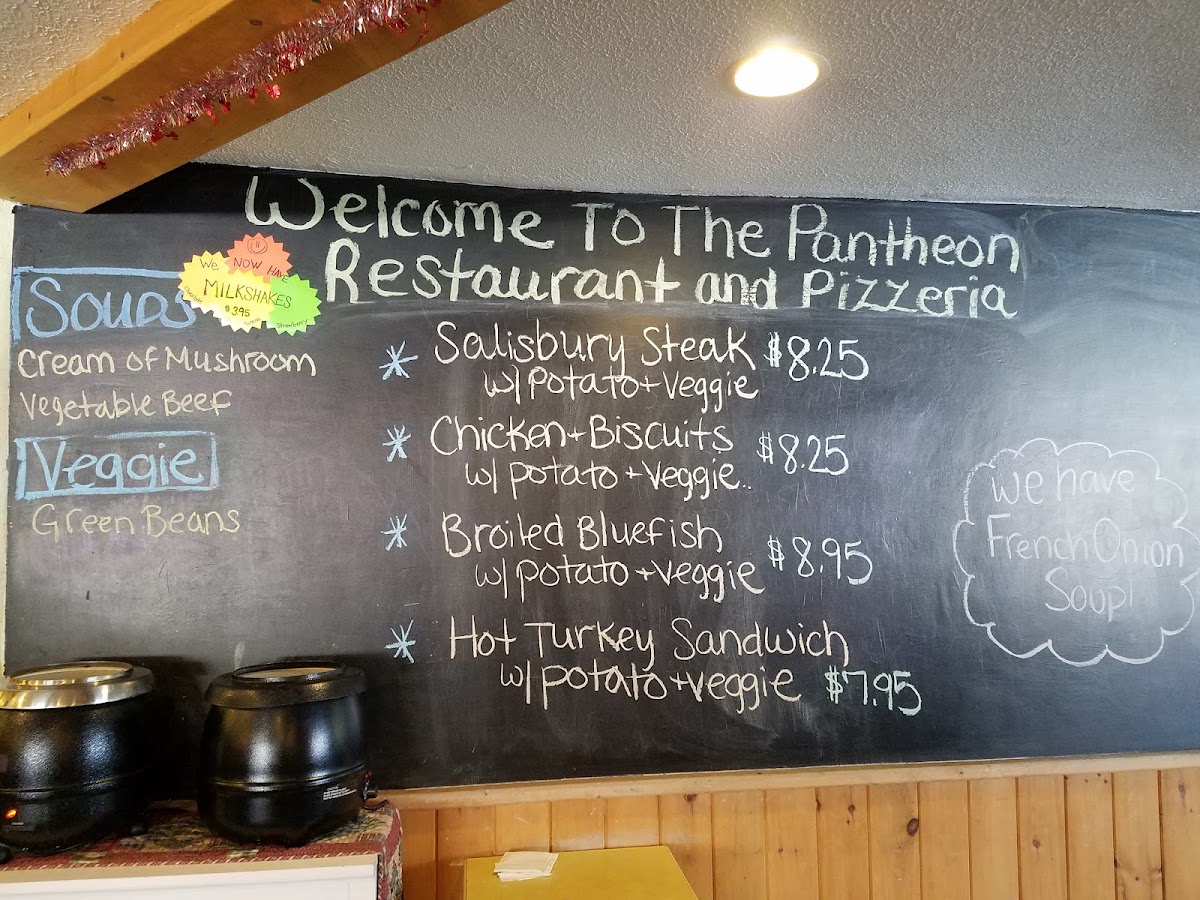 Welcome To The Pantheon
Restaurant and Pizzeria
We NOW HAVE
MILKSHAKES
$3.95
Strawberry
Soups
Cream of Mushroom
Vegetable Beef
Veggie
Green Beans
* Salisbury Steak $8.25
w/ Potato + Veggie
* Chicken + Biscuits $8.25
w/ potato + Veggie..
* Broiled Bluefish $8.95
w/ potato + veggie
* Hot Turkey Sandwich
w/ potato + veggie $7.95
we have
French Onion
Soup!